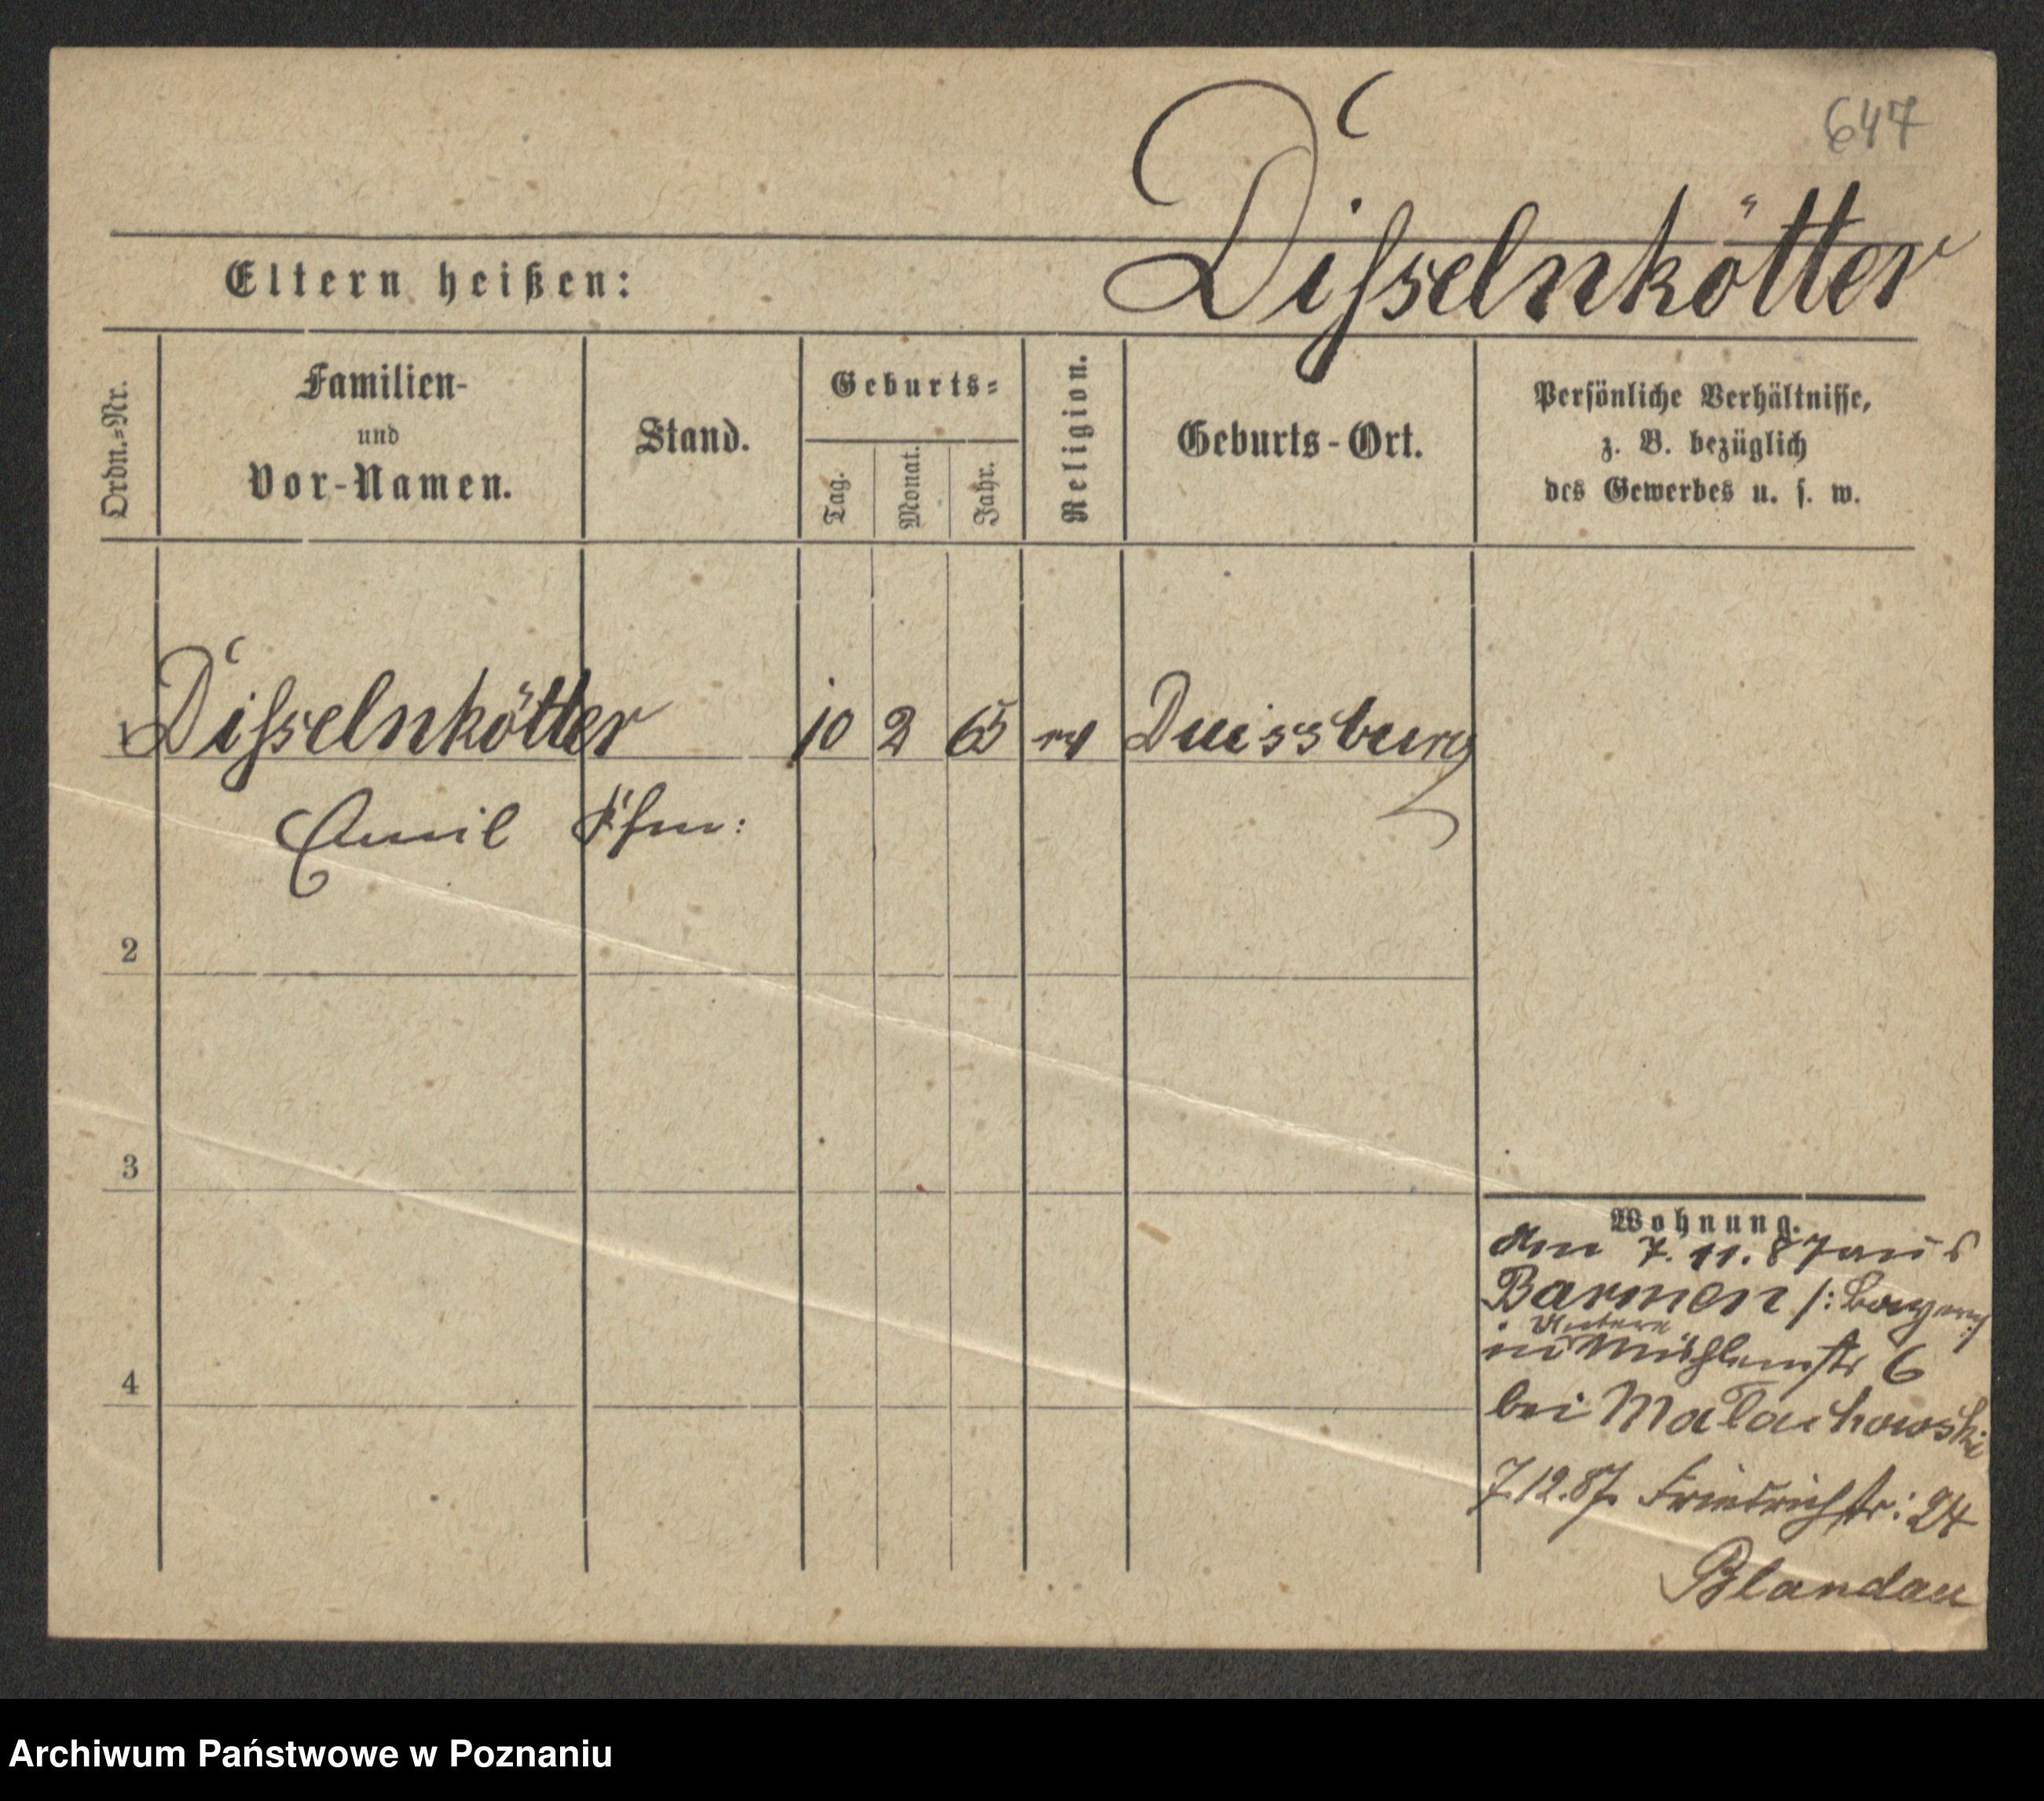 647
Disselnkötter
Eltern heißen:
Ordn.=Nr.
Familien-
und
Vor-Namen.
Stand.
Geburts=
Tag.
Monat.
Jahr.
Religion.
Geburts-Ort.
Persönliche Verhältnisse,
z. B. bezüglich
des Gewerbes u. s. w.
1 Disselnkötter 10 2 65 ev Duissburg
Emil Kfm:
2
3
4
Wohnung.
Am 7. 11. 87 aus
Barmen
Untere
in Mühlenstr 6
bei Malachowski
7.12.87. Friedrichstr: 24
Blandau
Archiwum Państwowe w Poznaniu